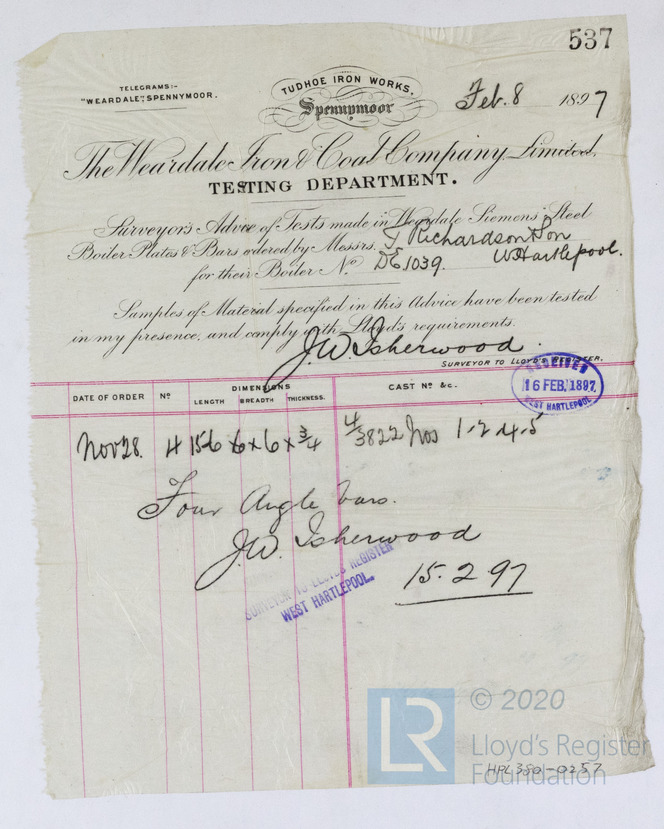 537
TELEGRAMS:-
"WEARDALE," SPENNYMOOR.
TUDHOE IRON WORKS,
Spennymoor
Feb. 8 1897
The Weardale Iron & Coal Company, Limited,
TESTING DEPARTMENT.
Surveyor's Advice of Tests made in Weardale Siemens' Steel
Boiler Plates & Bars ordered by Messrs. T. Richardson & Son
for their Boiler No. DE 1039. W. Hartlepool.
Samples of Material specified in this Advice have been tested
in my presence, and comply with Lloyd's requirements.
J.W. Isherwood.
SURVEYOR TO LLOYD'S REGISTER.
RECEIVED
16 FEB. 1897
WEST HARTLEPOOL
DATE OF ORDER No DIMENSIONS LENGTH BREADTH THICKNESS. CAST Nos &c.
Nov 28. 4 156 6 x 6 x 3/4 4/3822 Nos 1-2-4-5
Four Angle bars.
J.W. Isherwood
SURVEYOR TO LLOYDS REGISTER
WEST HARTLEPOOL.
15-2-97
LR
© 2020
Lloyd's Register
Foundation
HPL380-0257